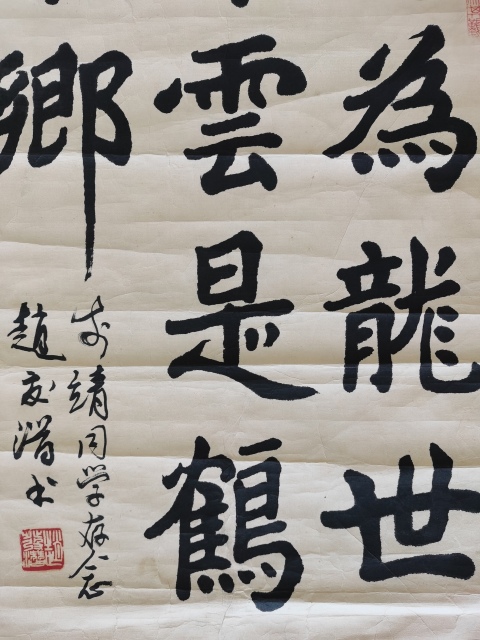 為龍世
雲是鶴
鄉
靖同学存念
趙友潛书